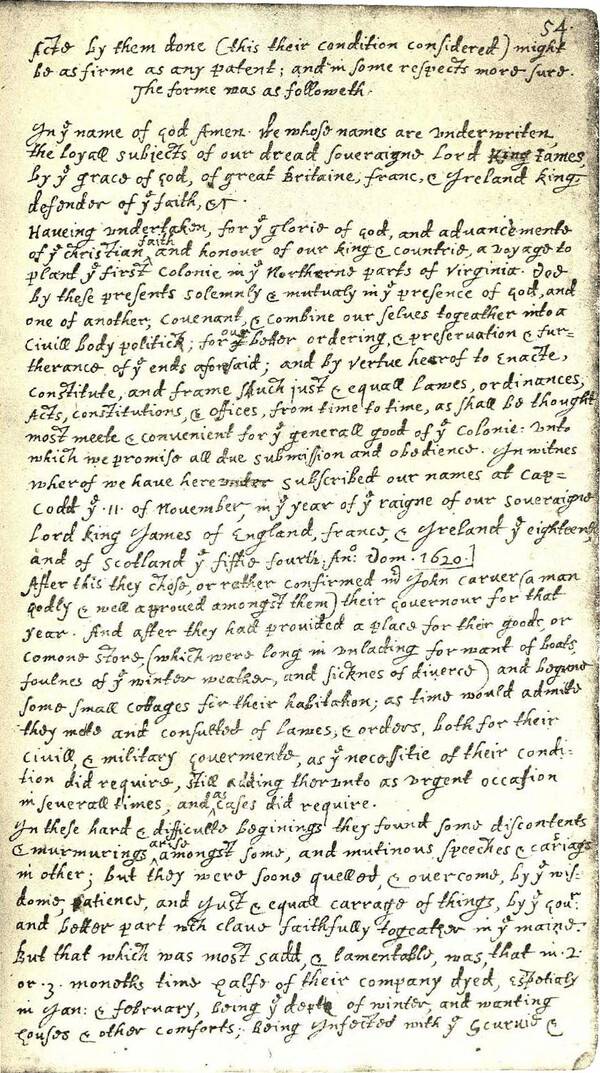 54
Acte by them done (this their condition considered) might
be as firme as any patent; and in some respects more sure.
The forme was as followeth.
In yͤ name of god Amen. We whose names are underwriten,
the loyall subjects of our dread soveraigne Lord King James
by yͤ grace of god, of great Britaine, franc, & Ireland king,
defender of yͤ faith, &c
Haveing undertaken, for yͤ glorie of god, and advancemente
of yͤ christian faith and honour of our king & countrie, a voyage to
plant yͤ first colonie in yͤ Northerne parts of Virginia. Doe
by these presents solemnly & mutualy in yͤ presence of god, and
one of another, covenant, & combine our selves togeather into a
civill body politick; for our better ordering, & preservation & fur=
therance of yͤ ends aforesaid; and by vertue hearof to enacte,
constitute, and frame shuch just & equall lawes, ordinances,
Acts, constitutions, & offices, from time to time, as shall be thought
most meete & convenient for yͤ generall good of yͤ Colonie: unto
which we promise all due submission and obedience. In witnes
wherof we have hereunder subscribed our names at Cap=
Codd yͤ .11. of November, in yͤ year of yͤ raigne of our soveraigne
Lord king James of England, france, & Ireland yͤ eighteenth
and of Scotland yͤ fiftie fourth. Anº: Dom. 1620.]
After this they chose, or rather confirmed mʳ John Carver (a man
godly & well approved amongst them) their Governour for that
year. And after they had provided a place for their goods, or
comone store, (which were long in unlading for want of boats,
foulnes of yͤ winter weather, and sicknes of diverce) and begune
some small cottages for their habitation; as time would admitte
they mette and consulted of lawes, & orders, both for their
civill, & military Govermente, as yͤ necessitie of their condi=
tion did require, still adding therunto as urgent occasion
in severall times, and as cases did require.
In these hard & difficulte beginings they found some discontents
& murmurings arise amongst some, and mutinous speeches & cariags
in other; but they were soone quelled, & overcome, by yͤ wis=
dome, patience, and just & equall carrage of things, by yͤ Govʳ:
and better part wᶜh clave faithfully togeather in yͤ maine.
But that which was most sadd, & lamentable, was, that in .2.
or .3. moneths time halfe of their company dyed, espetialy
in Jan: & february, being yͤ depth of winter, and wanting
houses & other comforts; being Infected with yͤ Scurvie &